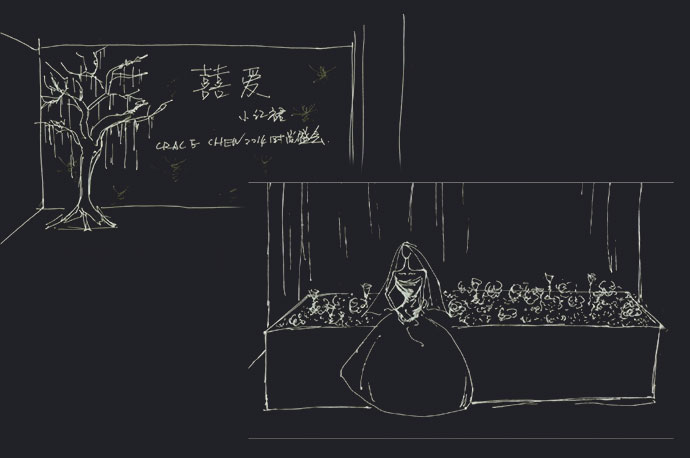 囍爱
小红裙
GRACE CHEN 2016时尚盛会.